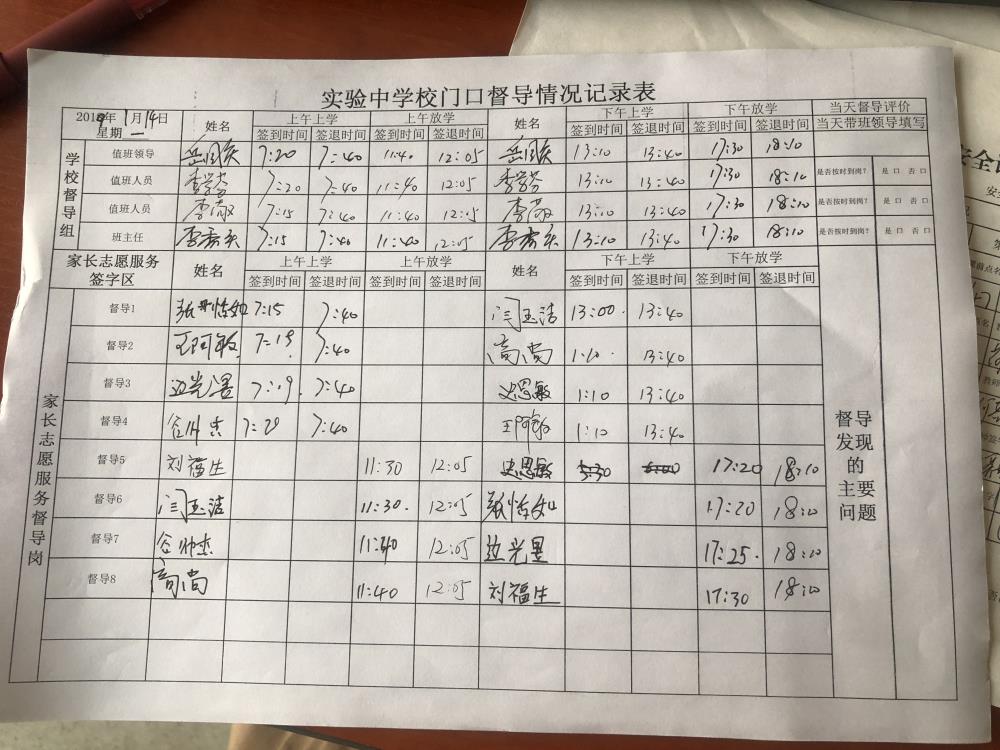 实验中学校门口督导情况记录表
2019年1月14日 星期一 姓名 上午上学 上午放学 姓名 下午上学 下午放学 当天督导评价
签到时间 签退时间 签到时间 签退时间 签到时间 签退时间 签到时间 签退时间 当天带班领导填写
学校督导组
值班领导 7:20 7:40 11:40 12:05 13:10 13:40 17:30 18:10
值班人员 7:20 7:40 11:40 12:05 13:10 13:40 17:30 18:10 是否按时到岗? 是口 否口
值班人员 李敬 7:15 7:40 11:40 12:05 李敬 13:10 13:40 17:30 18:10 是否按时到岗? 是口 否口
班主任 7:15 7:40 11:40 12:05 13:10 13:40 17:30 18:10 是否按时到岗? 是口 否口
家长志愿服务签字区 姓名 上午上学 上午放学 姓名 下午上学 下午放学
签到时间 签退时间 签到时间 签退时间 签到时间 签退时间 签到时间 签退时间
家长志愿服务督导岗
督导1 7:15 7:40 闫玉洁 13:00 13:40
督导2 王阿敏 7:15 7:40 高尚 1:10 13:40
督导3 7:19 7:40 史恩敏 1:10 13:40
督导4 7:20 7:40 王阿敏 1:10 13:40
督导5 刘福生 11:30 12:05 史恩敏 17:20 18:10
督导6 闫玉洁 11:30 12:05 17:20 18:10
督导7 11:40 12:05 17:25 18:10
督导8 高尚 11:40 12:05 刘福生 17:30 18:10
督导
发现
的
主要
问题